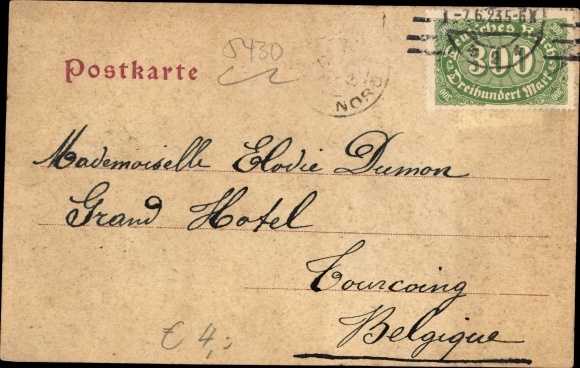 -7.6.23.5-6
Deutsches Reich
300
Dreihundert Mark
5430
Postkarte
NORD
Mademoiselle Elodie Dumon
Grand Hotel
Tourcoing
Belgique
€ 4,-